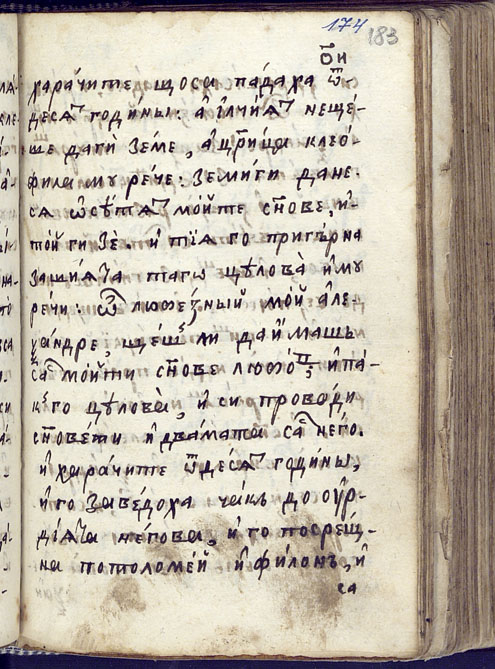 174
183
ѿ ни
хара́чите що са па́даха ѿ
десѧ҃т годи́ны: а҆ и҆лчїѧ҃т неще-
ше да ги зѐме, а҆ цр҃и́ца клео-
фила мꙋ рече: земи́ ги да не
сѧ ѡ҆сѣтѧ҃т мо́йте сн҃ове, и҆
то́й ги зѐ. и҆ тїѧ го пригърна
за шиѧ́та та го цѣлова̀ и҆ мꙋ
речи: ѽ любе́зный мо́й а҆ле-
ѯа́ндре, ще́ш ли да и҆машь
са мо́йти сн҃ове любо́в; и҆ па́-
к го цѣлова̀, и҆ си проводи
сн҃ове́ти и҆ два́мата са не́го.
и҆ хара́чите ѿ десѧ҃т годи́ны,
и҆ го заве́доха ча́къ до ѻу҆р-
дїѧ́та не́гова, и҆ го посре́щ-
на потоломе́й и҆ фи́лонъ, и҆
са